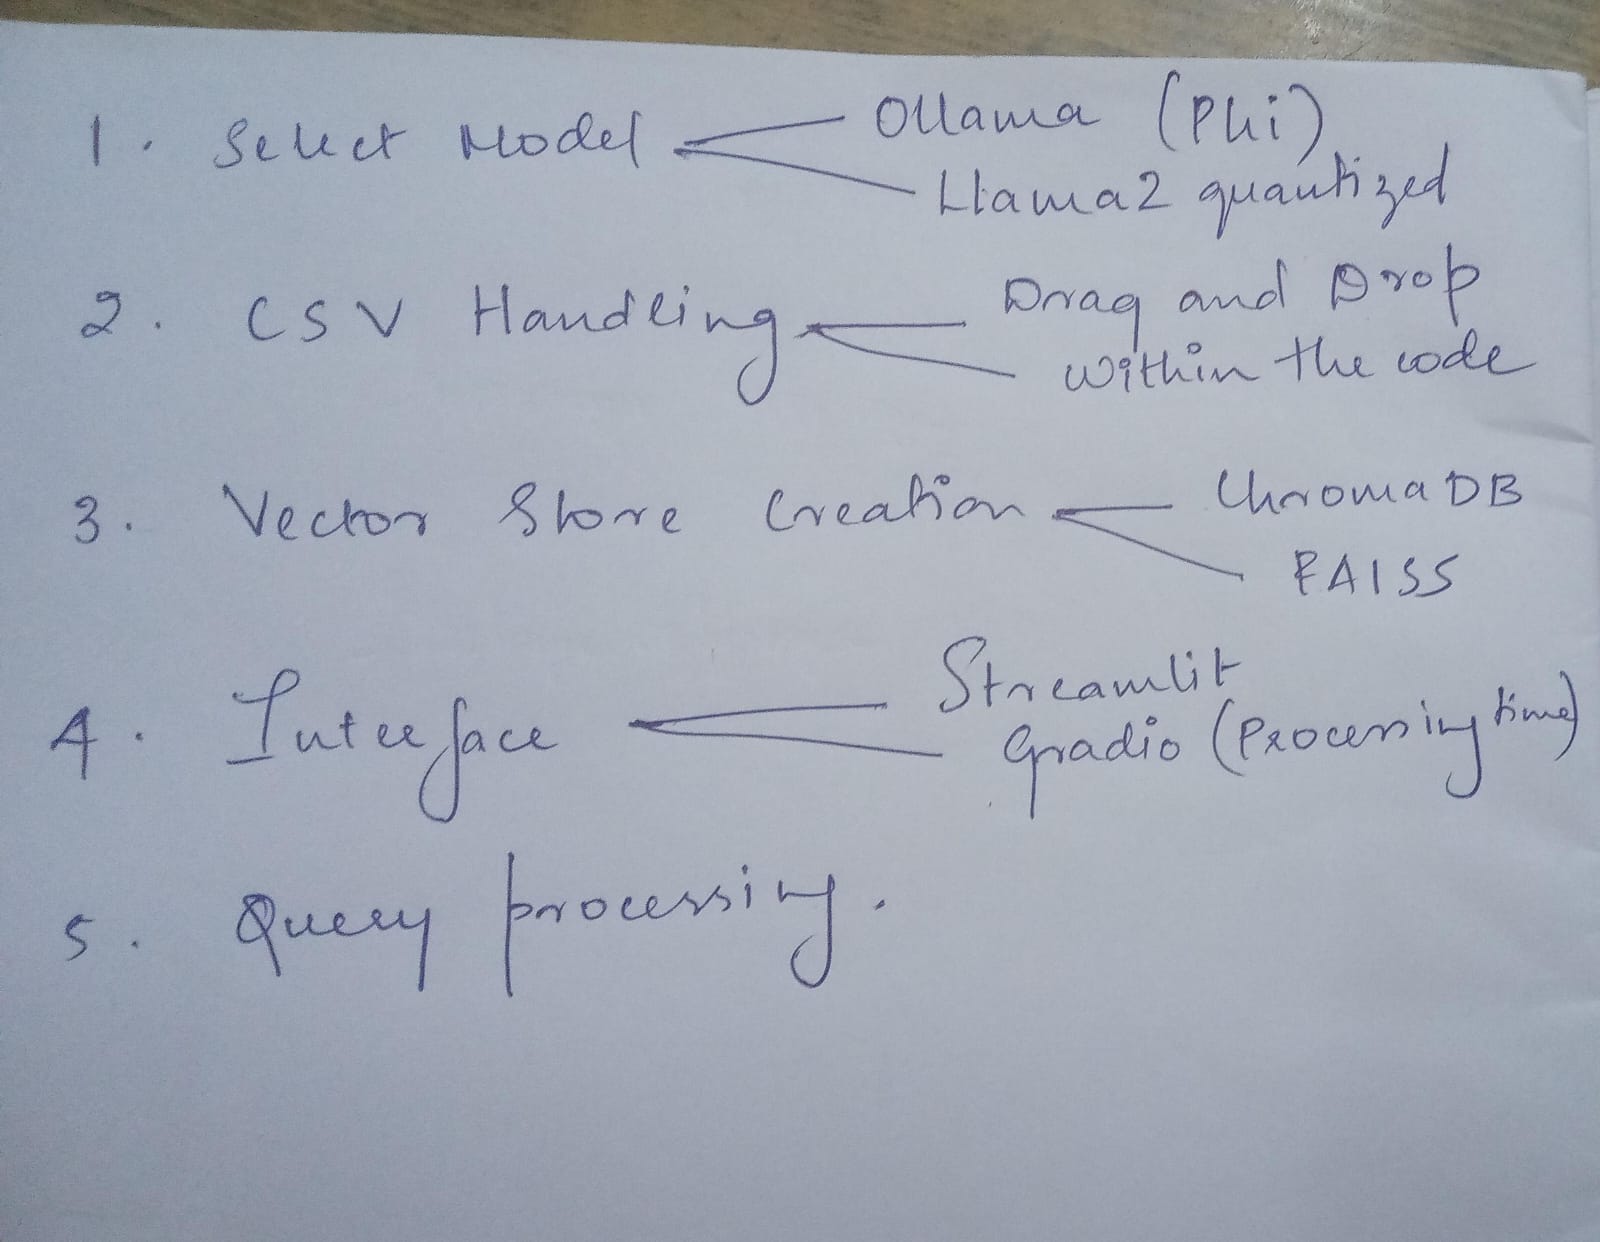 1. Select Model Ollama (Phi)
Llama2 quantized
2. CSV Handling Drag and Drop
within the code
3. Vector Store Creation ChromaDB
FAISS
4. Interface Streamlit
Gradio (Processing time)
5. Query processing.